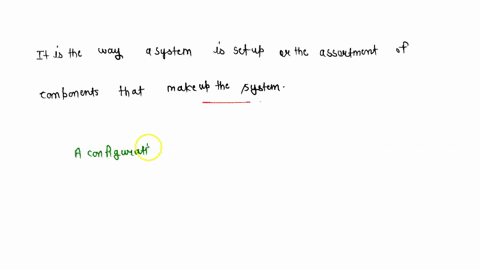 It is the way a system is setup or the assortment of
components that makeup the system.
A configurati